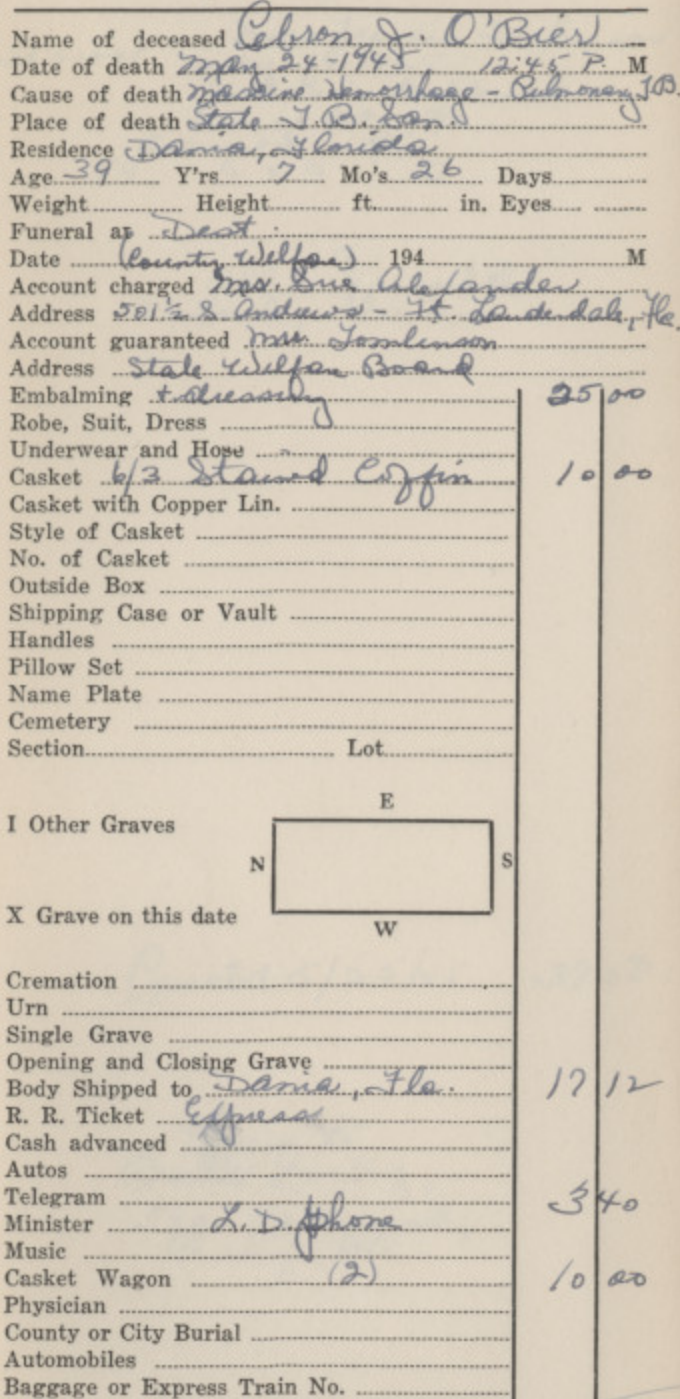 Name of deceased Cebron J. O'Bier
Date of death May 24-1945 12:45 P. M
Cause of death Massive Hemorrhage - Pulmonary T.B.
Place of death State T.B. San.
Residence Dania, Florida
Age 39 Y'rs. 7 Mo's 26 Days
Weight Height ft. in. Eyes
Funeral at Dest.
Date (County Welfare) 194 M
Account charged Mrs. Sue Alexander
Address 501½ S Andrews - Ft. Lauderdale, Fla.
Account guaranteed Mrs. Tomlinson
Address State Welfare Board
Embalming + dressing 25 00
Robe, Suit, Dress
Underwear and Hose
Casket 6/3 Stained Coffin 10 00
Casket with Copper Lin.
Style of Casket
No. of Casket
Outside Box
Shipping Case or Vault
Handles
Pillow Set
Name Plate
Cemetery
Section Lot
E
I Other Graves
N S
X Grave on this date
W
Cremation
Urn
Single Grave
Opening and Closing Grave
Body Shipped to Dania, Fla. 17 12
R. R. Ticket Express
Cash advanced
Autos
Telegram 3 40
Minister L. D. Phone
Music
Casket Wagon (2) 10 00
Physician
County or City Burial
Automobiles
Baggage or Express Train No.